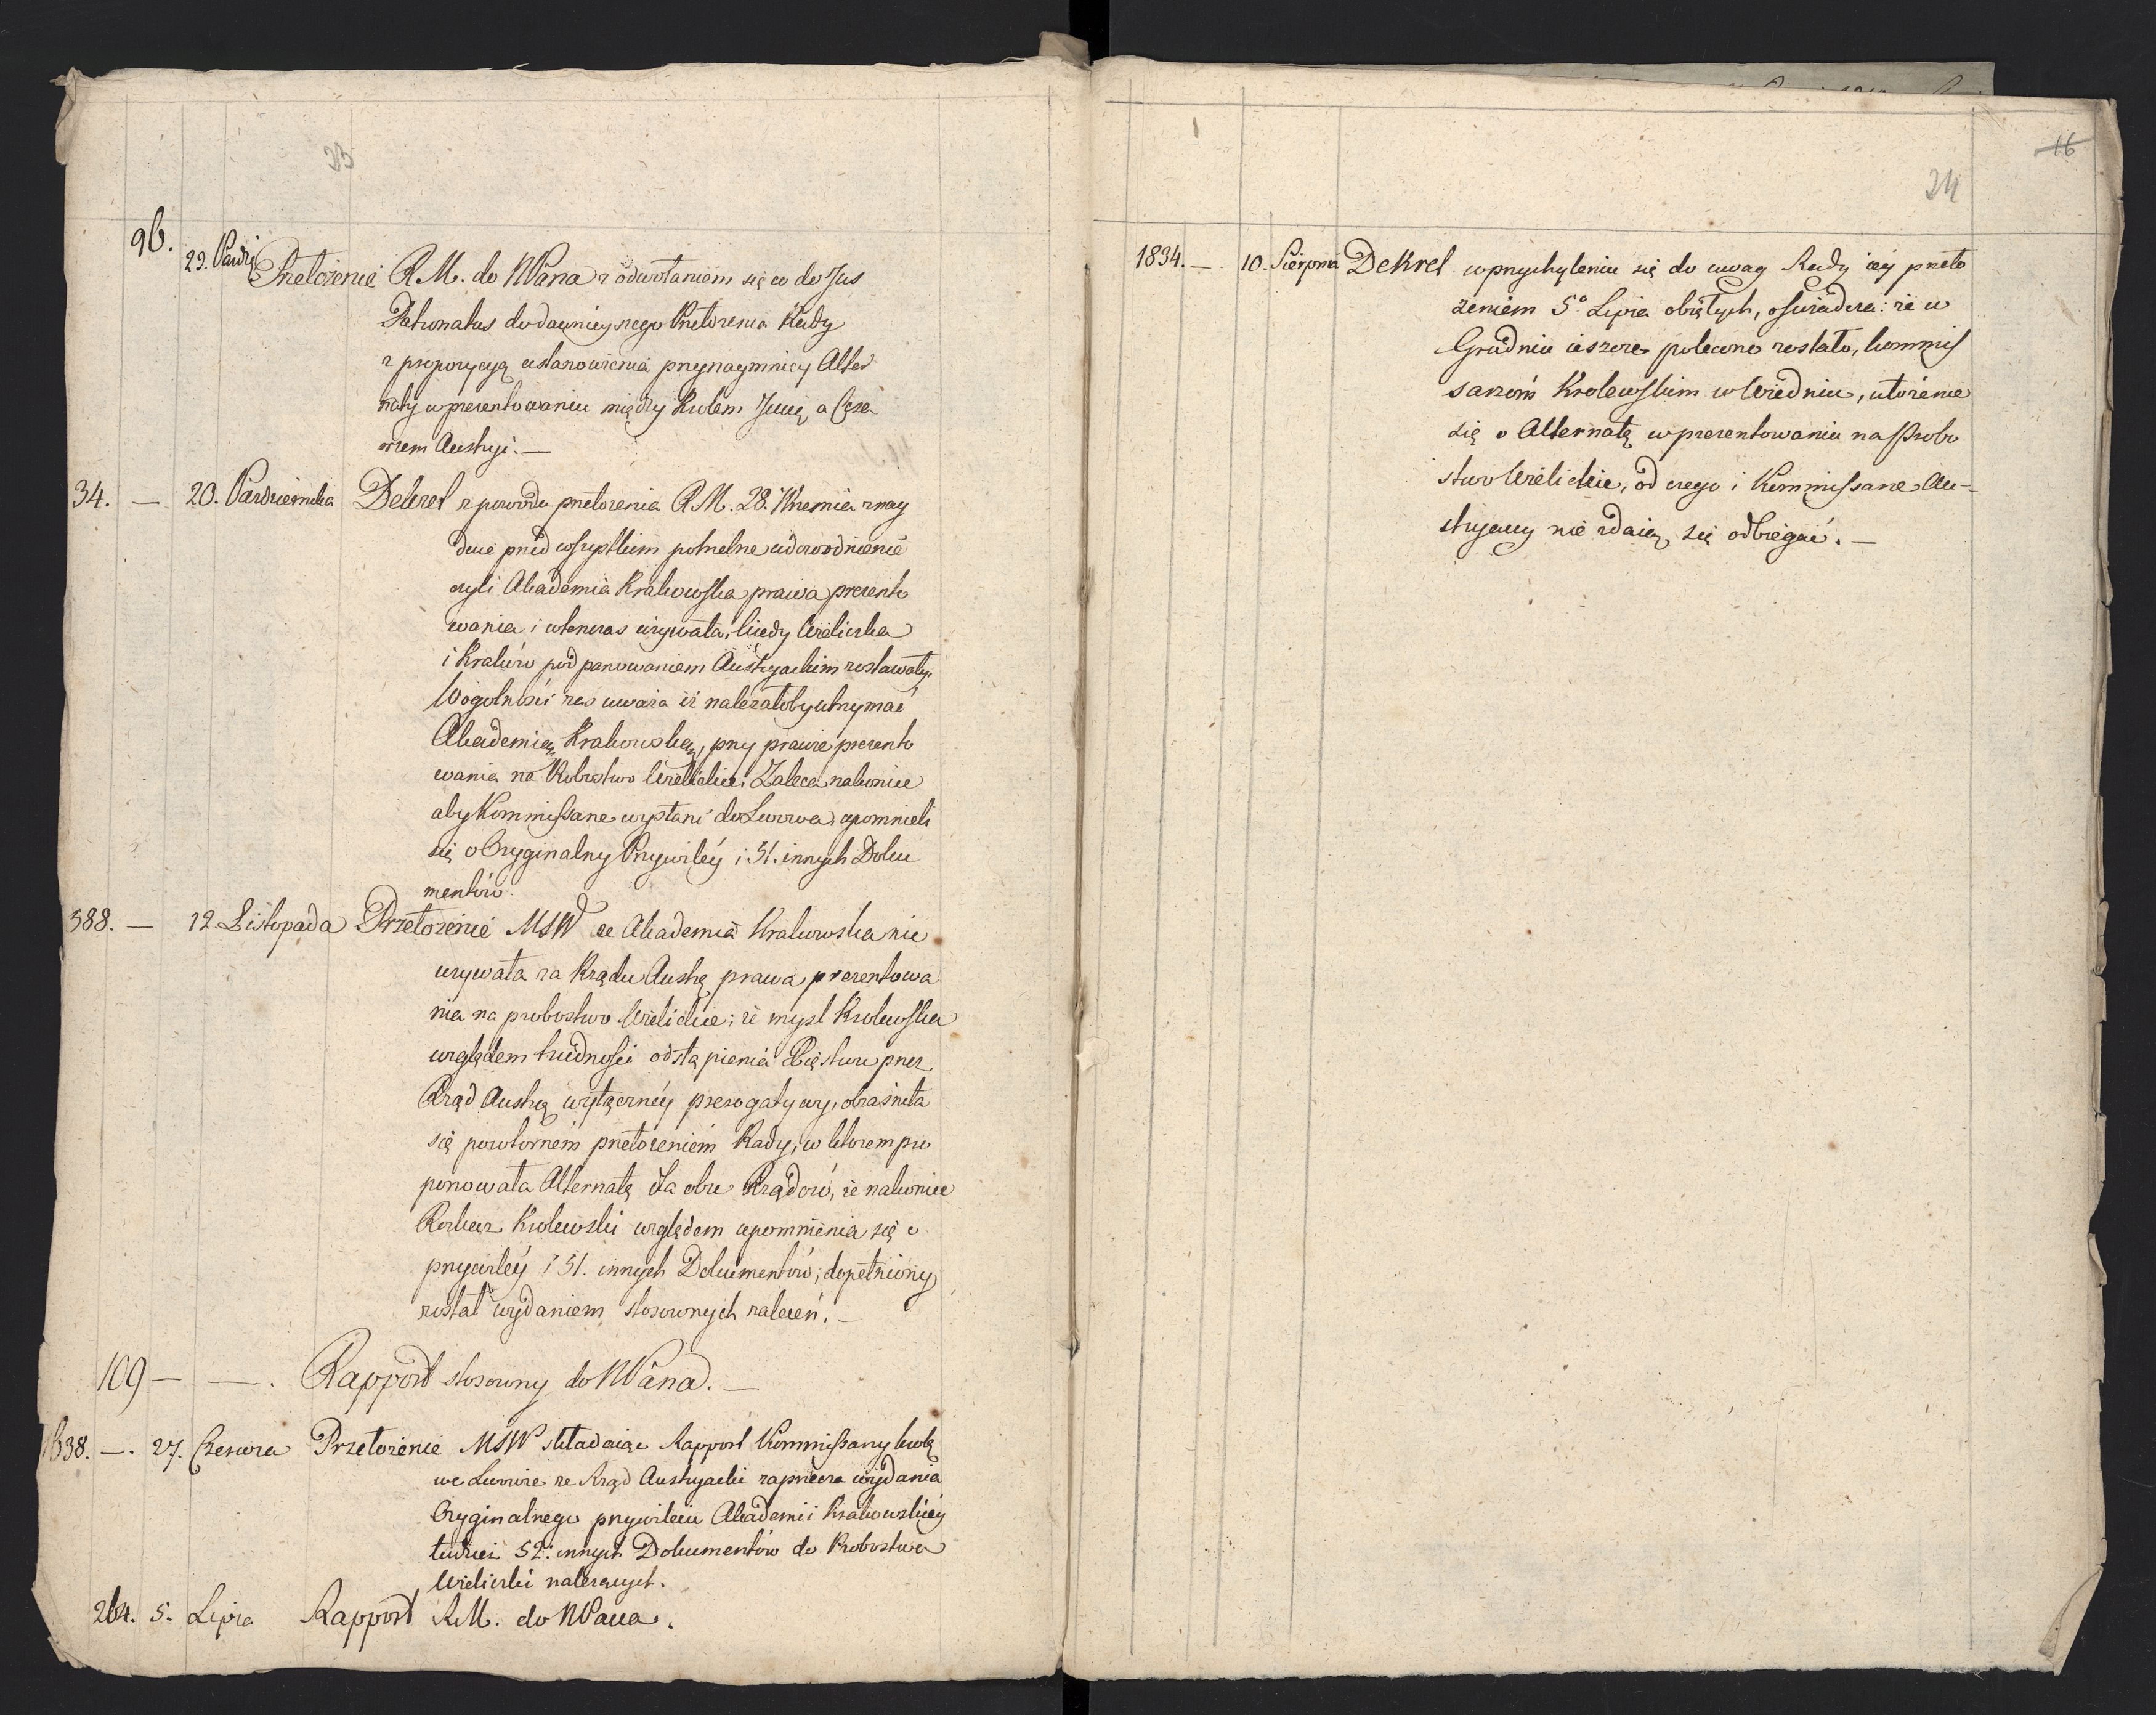 23
96. 29. Paźdź Przełożenie R.M. do NPana z odwołaniem się co do Jus
Patronatus do dawnieyszego Przełożenia Rady
z propozycyą ustanowienia przynaymniey Alter
naty w prezentowaniu między Królem Jmcią a Cesa
rzem Austryi. —
34. — 20. Październka Dekret z powodu przełożenia R.M. 28. Wrzesnia znay
duie przed wszystkiem potrzebne udowodnienie
czyli Akademia Krakowska prawa prezento
wania i wtenczas używała, kiedy Wieliczka
i Kraków pod panowaniem Austryackim zostawały.
W ogolności zas uważa iż należałoby utrzymać
Akademią Krakowską, przy prawie prezento
wania na Probostwo Wielickie; Zaleca nakoniec
aby Kommissarze wysłani do Lwowa, upomnieli
się o Oryginalny Przywiléy i 51. innych Doku
mentów.
388. — 12 Listopada Przełożenie MSW że Akademia Krakowska nie
używała za Rządu Austrą prawa prezentowa
nia na probostwo Wielickie; że mysl Królewska
względem trudności odstąpienia Xięstwu przez
Rząd Austrą wyłącznéy prerogatywy, obiaśniła
się powtórném przełożeniem Rady, w ktorem pro
ponowała Alternatę dla obu Rządów, że nakoniec
Rozkaz Królewski względem upomnienia się o
przywiléy i 51. innych Dokumentów, dopełniony
został wydaniem stosownych zaleceń. —
109 — — . Rapport stosowny do NPana. —
1838. — . 27. Czerwca Przełożenie MSW składaiąc Rapport Kommissarzy Królą
we Lwowie że Rząd Austryacki zaprzecza wydania
Oryginalnego przywileiu Akademii Krakowskiéy
tudzież 52. innych Dokumentów do Probostwa
Wieliczki należących.
264. 5. Lipca Rapport R.M. do NPana.
16
24
1834. — 10. Sierpnia Dekret w przychyleniu się do uwag Rady iéy przeło
żeniem 5° Lipca obiętych, oswiadcza: że w
Grudniu ieszcze polecone zostało, kommis
sarzóm Królewskim w Wiedniu, ułożenie
się o Alternatę w prezentowaniu na Probo
stwo Wielickie, od czego i Kommissarze Au-
stryaccy nie zdaią się odbiegać. —